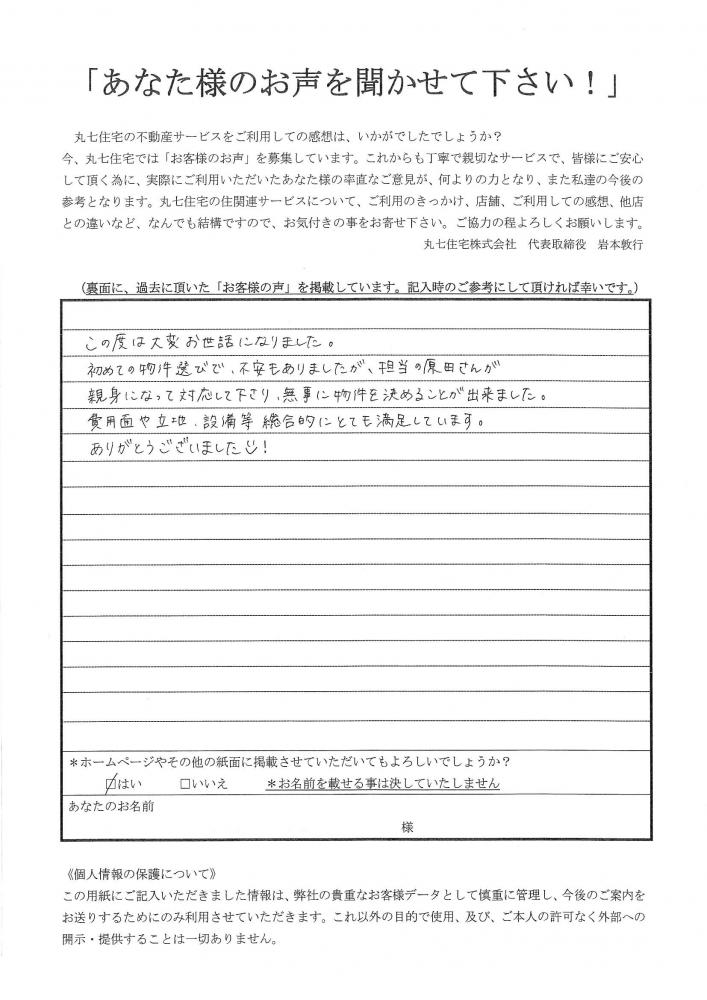 「あなた様のお声を聞かせて下さい！」
丸七住宅の不動産サービスをご利用しての感想は、いかがでしたでしょうか？
今、丸七住宅では「お客様のお声」を募集しています。これからも丁寧で親切なサービスで、皆様にご安心
して頂く為に、実際にご利用いただいたあなた様の率直なご意見が、何よりの力となり、また私達の今後の
参考となります。丸七住宅の住関連サービスについて、ご利用のきっかけ、店舗、ご利用しての感想、他店
との違いなど、なんでも結構ですので、お気付きの事をお寄せ下さい。ご協力の程よろしくお願いします。
丸七住宅株式会社　代表取締役　岩本敦行
（裏面に、過去に頂いた「お客様の声」を掲載しています。記入時のご参考にして頂ければ幸いです。）
この度は大変お世話になりました。
初めての物件選びで、不安もありましたが、担当の原田さんが
親身になって対応して下さり、無事に物件を決めることが出来ました。
費用面や立地、設備等 総合的にとても満足しています。
ありがとうございました!
＊ホームページやその他の紙面に掲載させていただいてもよろしいでしょうか？
☑はい　□いいえ　＊お名前を載せる事は決していたしません
あなたのお名前
様
《個人情報の保護について》
この用紙にご記入いただきました情報は、弊社の貴重なお客様データとして慎重に管理し、今後のご案内を
お送りするためにのみ利用させていただきます。これ以外の目的で使用、及び、ご本人の許可なく外部への
開示・提供することは一切ありません。